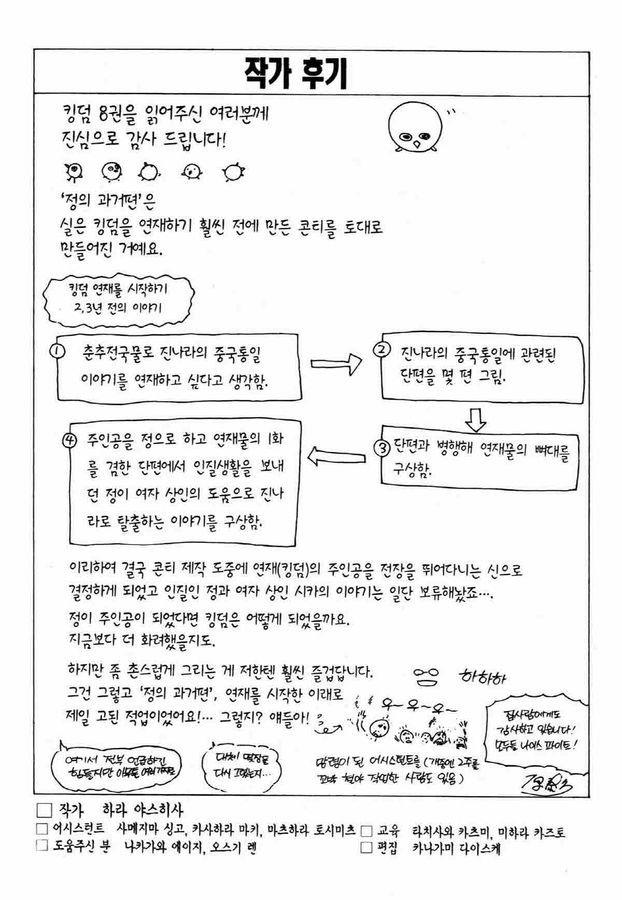 작가 후기
킹덤 8권을 읽어주신 여러분께
진심으로 감사 드립니다!
'정의 과거편'은
실은 킹덤을 연재하기 훨씬 전에 만든 콘티를 토대로
만들어진 거예요.
킹덤 연재를 시작하기
2,3년 전의 이야기
① 춘추전국물로 진나라의 중국통일
이야기를 연재하고 싶다고 생각함.
② 진나라의 중국통일에 관련된
단편을 몇 편 그림.
③ 단편과 병행해 연재물의 뼈대를
구상함.
④ 주인공을 정으로 하고 연재물의 1화
를 겸한 단편에서 인질생활을 보내
던 정이 여자 상인의 도움으로 진나
라로 탈출하는 이야기를 구상함.
이리하여 결국 콘티 제작 도중에 연재(킹덤)의 주인공을 전장을 뛰어다니는 신으로
결정하게 되었고 인질인 정과 여자 상인 시카의 이야기는 일단 보류해놨죠….
정이 주인공이 되었다면 킹덤은 어떻게 되었을까요.
지금보다 더 화려했을지도.
하지만 좀 촌스럽게 그리는 게 저한텐 훨씬 즐겁답니다.
하하하
그건 그렇고 '정의 과거편', 연재를 시작한 이래로
제일 고된 작업이었어요!… 그렇지? 얘들아!
우~우~우~
집사람에게도
감사하고 있습니다!
모두들 나이스 파이트!
여기서 전부 언급하긴
힘들지만
대체 몇 장을
다시 그렸는지…
망령이 된 어시스턴트들 (개중엔 2주를
꼬박 작업한 사람도 있음)
□ 작가 하라 야스히사
□ 어시스턴트 사메지마 싱고, 카사하라 마키, 마츠하라 토시미츠
□ 교육 타치사와 카츠미, 미하라 카즈토
□ 도움주신 분 나카가와 에이지, 오스기 렌
□ 편집 카나가미 다이스케